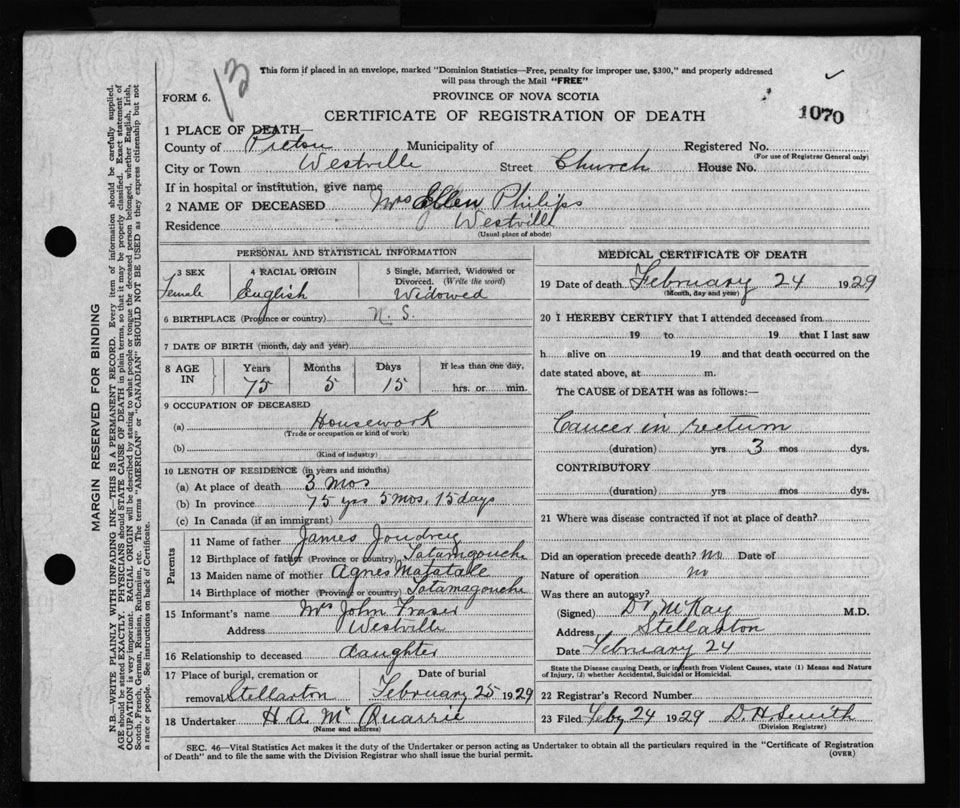 13
This form if placed in an envelope, marked "Dominion Statistics—Free, penalty for improper use, $300," and properly addressed
will pass through the Mail "FREE"
FORM 6.
PROVINCE OF NOVA SCOTIA
1070
CERTIFICATE OF REGISTRATION OF DEATH
1 PLACE OF DEATH—
County of Pictou Municipality of Registered No.
(For use of Registrar General only)
City or Town Westville Street Church House No.
If in hospital or institution, give name
2 NAME OF DECEASED Mrs Ellen Philips
Residence Westville
(Usual place of abode)
PERSONAL AND STATISTICAL INFORMATION
3 SEX
Female
4 RACIAL ORIGIN
English
5 Single, Married, Widowed or
Divorced. (Write the word)
Widowed
6 BIRTHPLACE (Province or country) N. S.
7 DATE OF BIRTH (month, day and year)
8 AGE
IN
Years Months Days If less than one day,
75 5 15 hrs. or min.
9 OCCUPATION OF DECEASED
(a) Housework
(Trade or occupation or kind of work)
(b)
(Kind of industry)
10 LENGTH OF RESIDENCE (in years and months)
(a) At place of death 3 mos
(b) In province 75 yrs 5 mos, 15 days
(c) In Canada (if an immigrant)
Parents
11 Name of father James Joudrey
12 Birthplace of father (Province or country) Tatamagouche
13 Maiden name of mother Agnes Matatall
14 Birthplace of mother (Province or country) Tatamagouche
15 Informant's name Mrs John Fraser
Address Westville
16 Relationship to deceased daughter
17 Place of burial, cremation or Date of burial
removal Stellarton February 25 1929
18 Undertaker H. A. McQuarrie
(Name and address)
MEDICAL CERTIFICATE OF DEATH
19 Date of death February 24 1929
(Month, day and year)
20 I HEREBY CERTIFY that I attended deceased from
19 to 19 that I last saw
h alive on 19 and that death occurred on the
date stated above, at m.
The CAUSE of DEATH was as follows:—
Cancer in rectum
(duration) yrs 3 mos dys.
CONTRIBUTORY
(duration) yrs mos dys.
21 Where was disease contracted if not at place of death?
Did an operation precede death? no Date of
Nature of operation no
Was there an autopsy?
(Signed) Dr McKay M.D.
Address Stellarton
Date February 24
State the Disease causing Death, or in death from Violent Causes, state (1) Means and Nature
of Injury, (2) whether Accidental, Suicidal or Homicidal.
22 Registrar's Record Number
23 Filed Feby 24 1929 D. H. Smith
(Division Registrar)
SEC. 46—Vital Statistics Act makes it the duty of the Undertaker or person acting as Undertaker to obtain all the particulars required in the "Certificate of Registration
of Death" and to file the same with the Division Registrar who shall issue the burial permit.
(OVER)
MARGIN RESERVED FOR BINDING
N.B.—WRITE PLAINLY WITH UNFADING INK—THIS IS A PERMANENT RECORD. Every item of information should be carefully supplied.
AGE should be stated EXACTLY. PHYSICIANS should STATE CAUSE OF DEATH in plain terms, so that it may be properly classified. Exact statement of
OCCUPATION is very important. RACIAL ORIGIN will be described by stating to what people or tongue the deceased person belonged, whether English, Irish,
Scotch, French, German, Russian, Ruthenian, etc. The terms "AMERICAN" or "CANADIAN" SHOULD NOT BE USED as they express citizenship but not
a race or people. See instructions on back of Certificate.